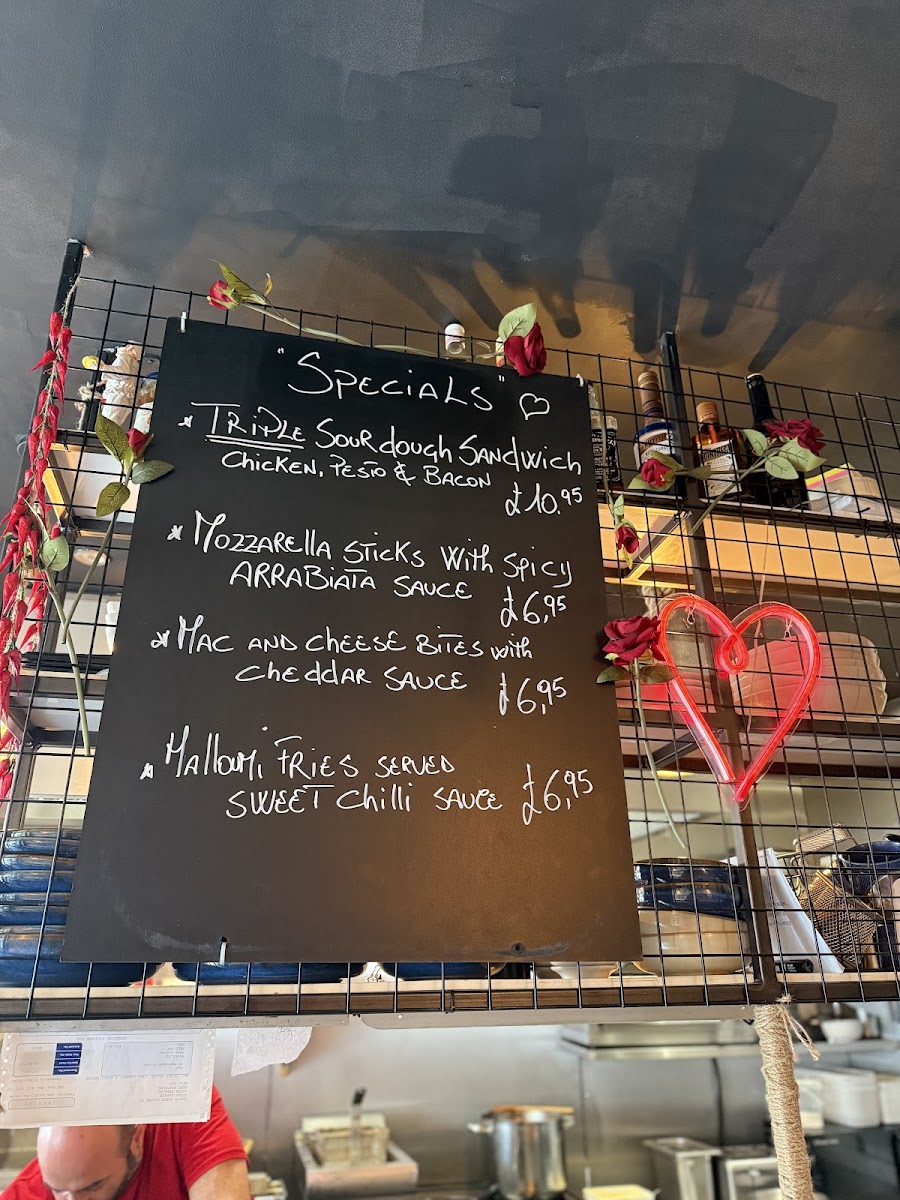 "SPECIALS"
* TRIPLE SOURdough SANdwich
CHICKEN, PESTO & BACON
£10.95
* MOZZARELLA STICKS WITH SPICY
ARRABIATA SAUCE
£6,95
* MAC AND CHEESE BITES with
CHEddAR SAUCE
£6,95
* Halloumi FRIES SERVED
SWEET Chilli SAUCE £6,95